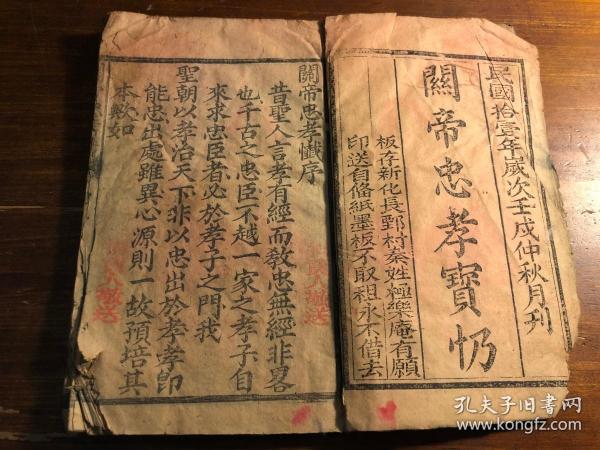 民國拾壹年歲次壬戌仲秋月刊
關帝忠孝寶忏
板存新化長鄄村秦姓極樂庵有願
印送自俻紙墨板不取租永不借去
關帝忠孝懺序
昔聖人言孝有經而教忠無經非畧
也千古之忠臣不越一家之孝子自
來求忠臣者必於孝子之門我
聖朝以孝治天下非以忠出於孝孝即
能忠出處雖異心源則一故預培其
本歟如
孔夫子旧书网
www.kongfz.com